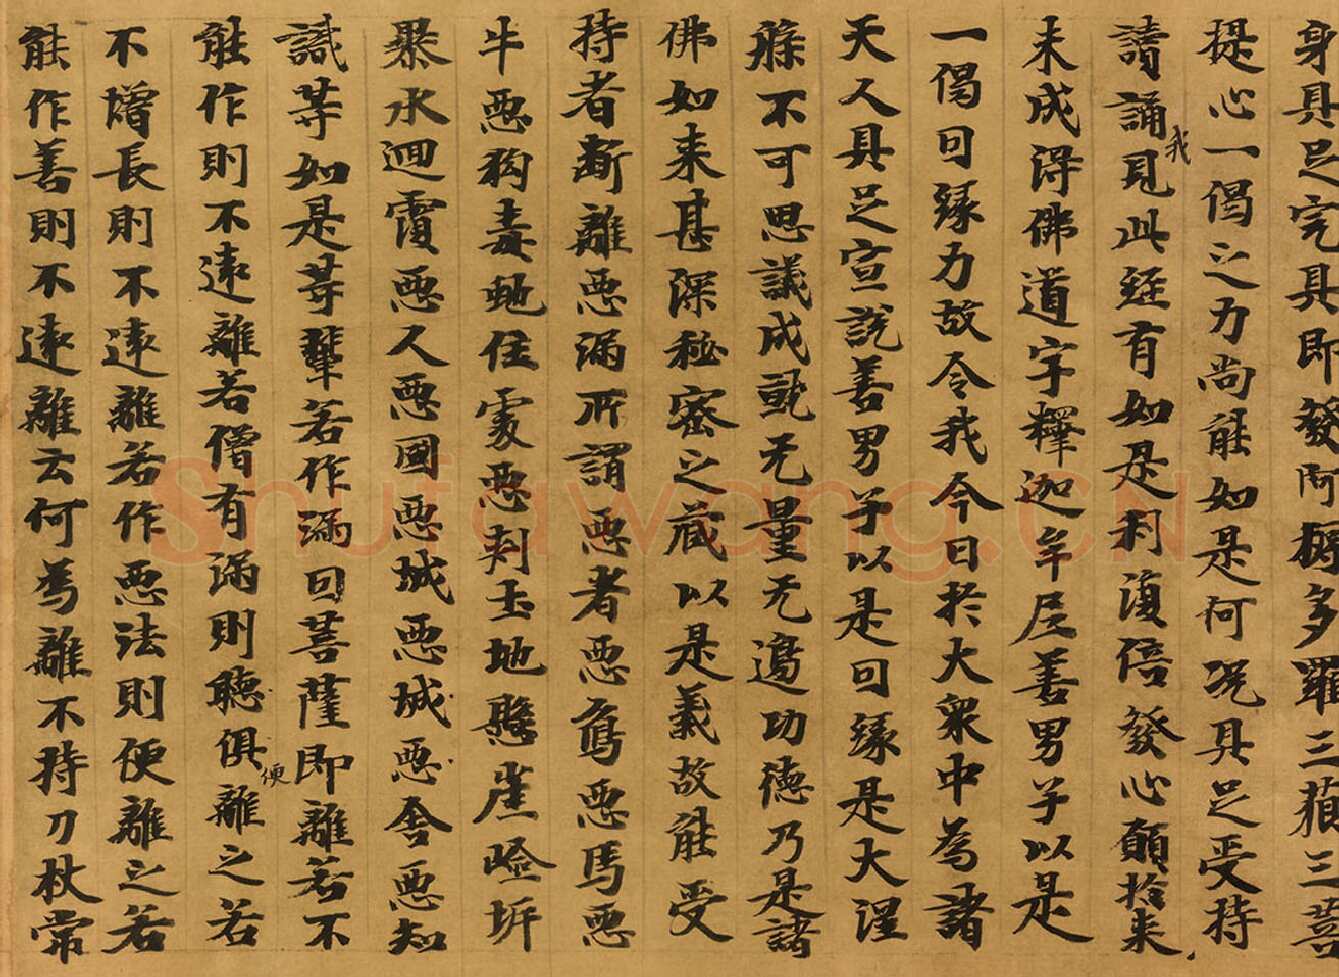 身具足完具即發阿耨多羅三藐三菩
提心一偈之力尚能如是何況具足受持
讀誦我見此經有如是利復倍發心願於未
来成得佛道字釋迦牟尼善男子以是
一偈因緣力故令我今日於大衆中為諸
天人具足宣說善男子以是因緣是大涅
槃不可思議成就无量无邊功德乃是諸
佛如来甚深秘密之藏以是義故能受
持者斷離惡漏所謂惡者惡象惡馬惡
牛惡狗毒虵住處惡刺土地懸崖嶮岸
暴水迴澓惡人惡國惡城惡城惡舍惡知
識等如是等輩若作漏因菩薩即離若不
能作則不遠離若增有漏則聽俱便離之若
不增長則不遠離若作惡法則便離之若
能作善則不遠離云何為離不持刀杖常
Shufawang.CN